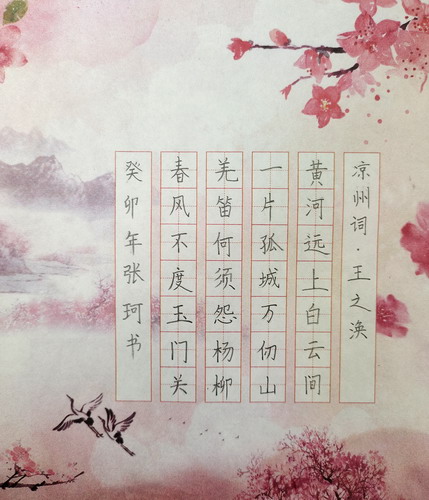 凉州词·王之涣
黄河远上白云间
一片孤城万仞山
羌笛何须怨杨柳
春风不度玉门关
癸卯年张珂书